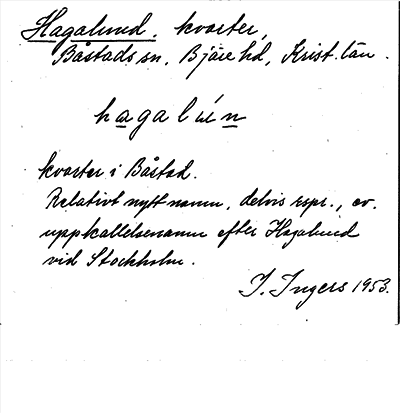 Hagalund, kvarter,
Båstads sn, Bjäre hd, Krist. län.
hagalún
kvarter i Båstad.
Relativt nytt namn, delvis espr., ev.
uppkallelsenamn efter Hagalund
vid Stockholm.
I. Ingers 1953.